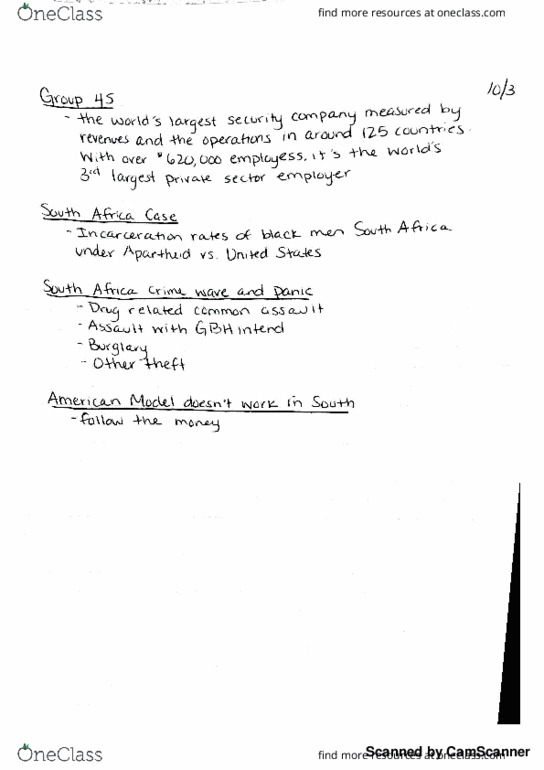 OneClass
find more resources at oneclass.com
10/3
Group 4S
- the world's largest security company measured by
revenues and the operations in around 125 countries.
With over $620,000 employess, it's the world's
3rd largest private sector employer
South Africa Case
- Incarceration rates of black men South Africa
under Apartheid vs. United States
South Africa Crime wave and panic
- Drug related common assault
- Assault with GBH intend
- Burglary
- Other theft
American Model doesn't work in South
- follow the money
OneClass
find more resources at oneclass.com
Scanned by CamScanner